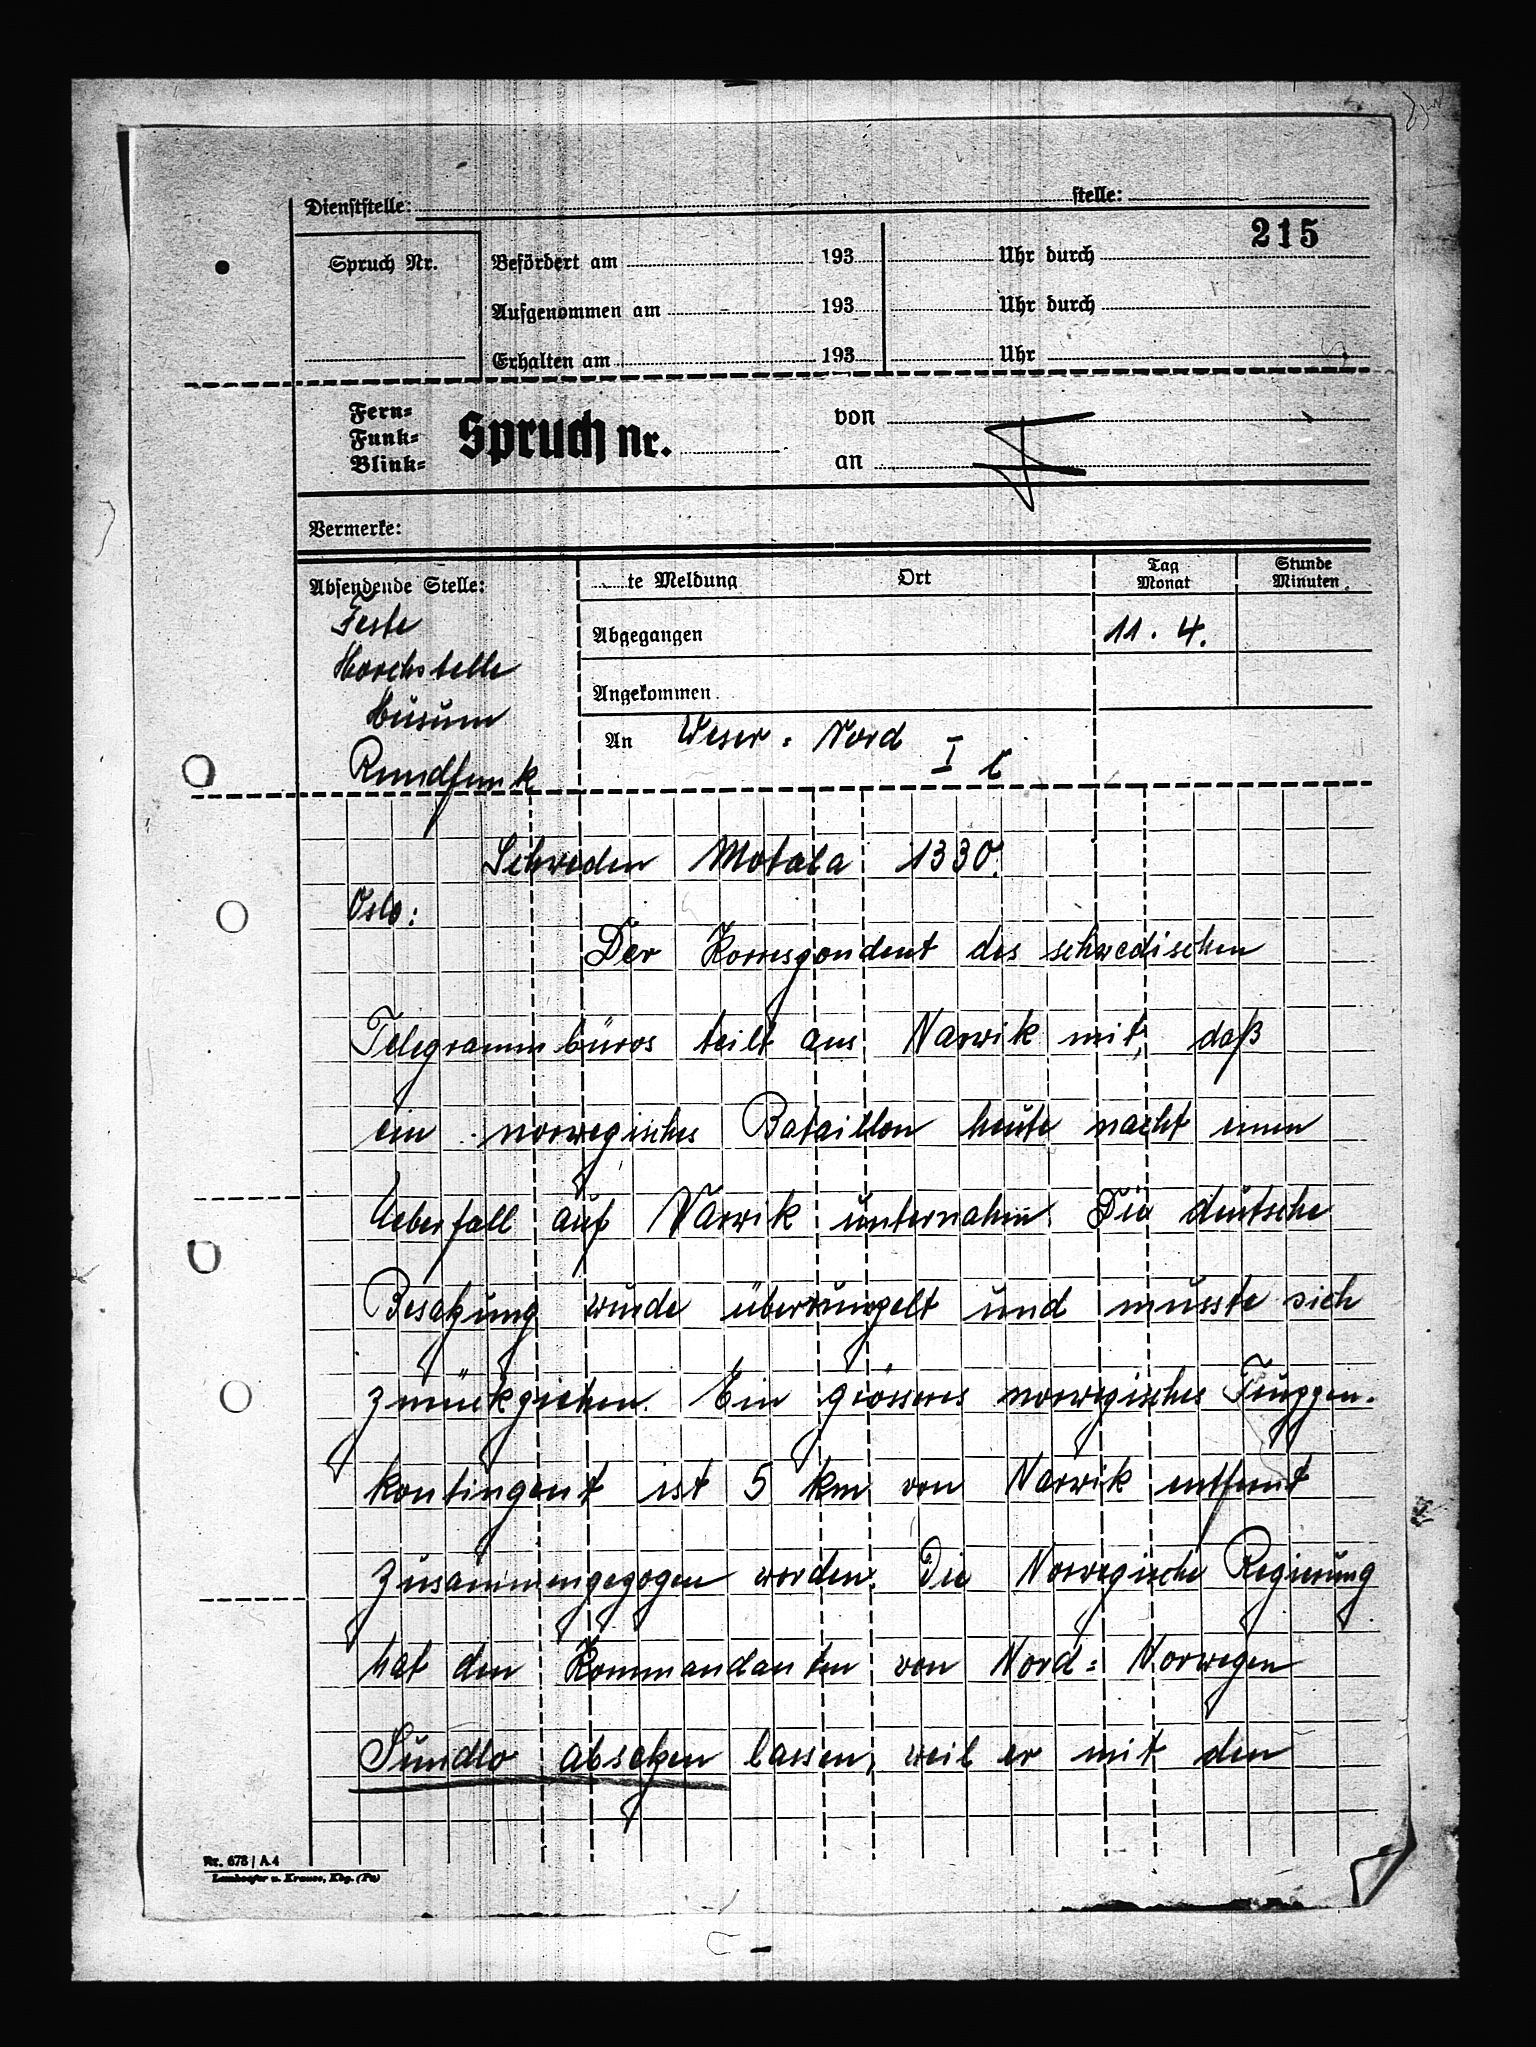 Dienststelle: stelle:
215
Spruch Nr. Befördert am 193 Uhr durch
Aufgenommen am 193 Uhr durch
Erhalten am 193 Uhr
Fern=
Funk=
Blink=
Spruch nr.
von
an
Vermerke:
Absendende Stelle:
te Meldung Ort Tag Monat Stunde Minuten
Feste
Horchstelle
Husum
Rundfunk
Abgegangen 11. 4.
Angekommen
An Weser=Nord I c
Schweden Motala 1330.
Oslo:
Der Korrespondent des schwedischen
Telegrammbüros teilt aus Narvik mit, daß
ein norwegisches Bataillon heute nacht einen
Ueberfall auf Narvik unternahm. Die deutsche
Besatzung wurde überrumpelt und musste sich
zurückziehen. Ein grösseres norwegisches Truppen=
kontingent ist 5 km von Narvik entfernt
zusammengezogen worden. Die Norwegische Regierung
hat den Kommandanten von Nord=Norwegen
Sundlo absetzen lassen, weil er mit den
Nr. 678 | A 4